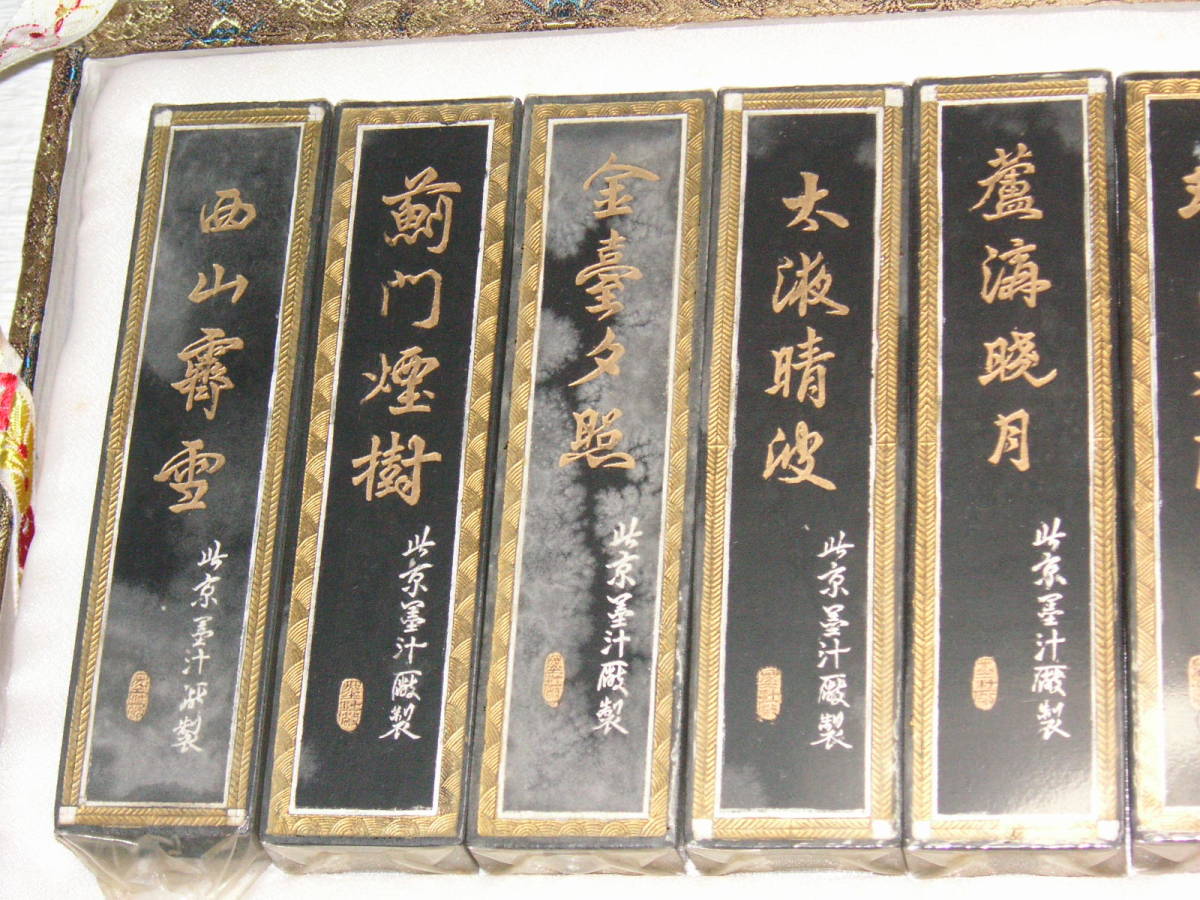 西山霽雪
北京墨汁厰製
薊門煙樹
北京墨汁厰製
金臺夕照
北京墨汁厰製
太液晴波
北京墨汁厰製
蘆溝曉月
北京墨汁厰製